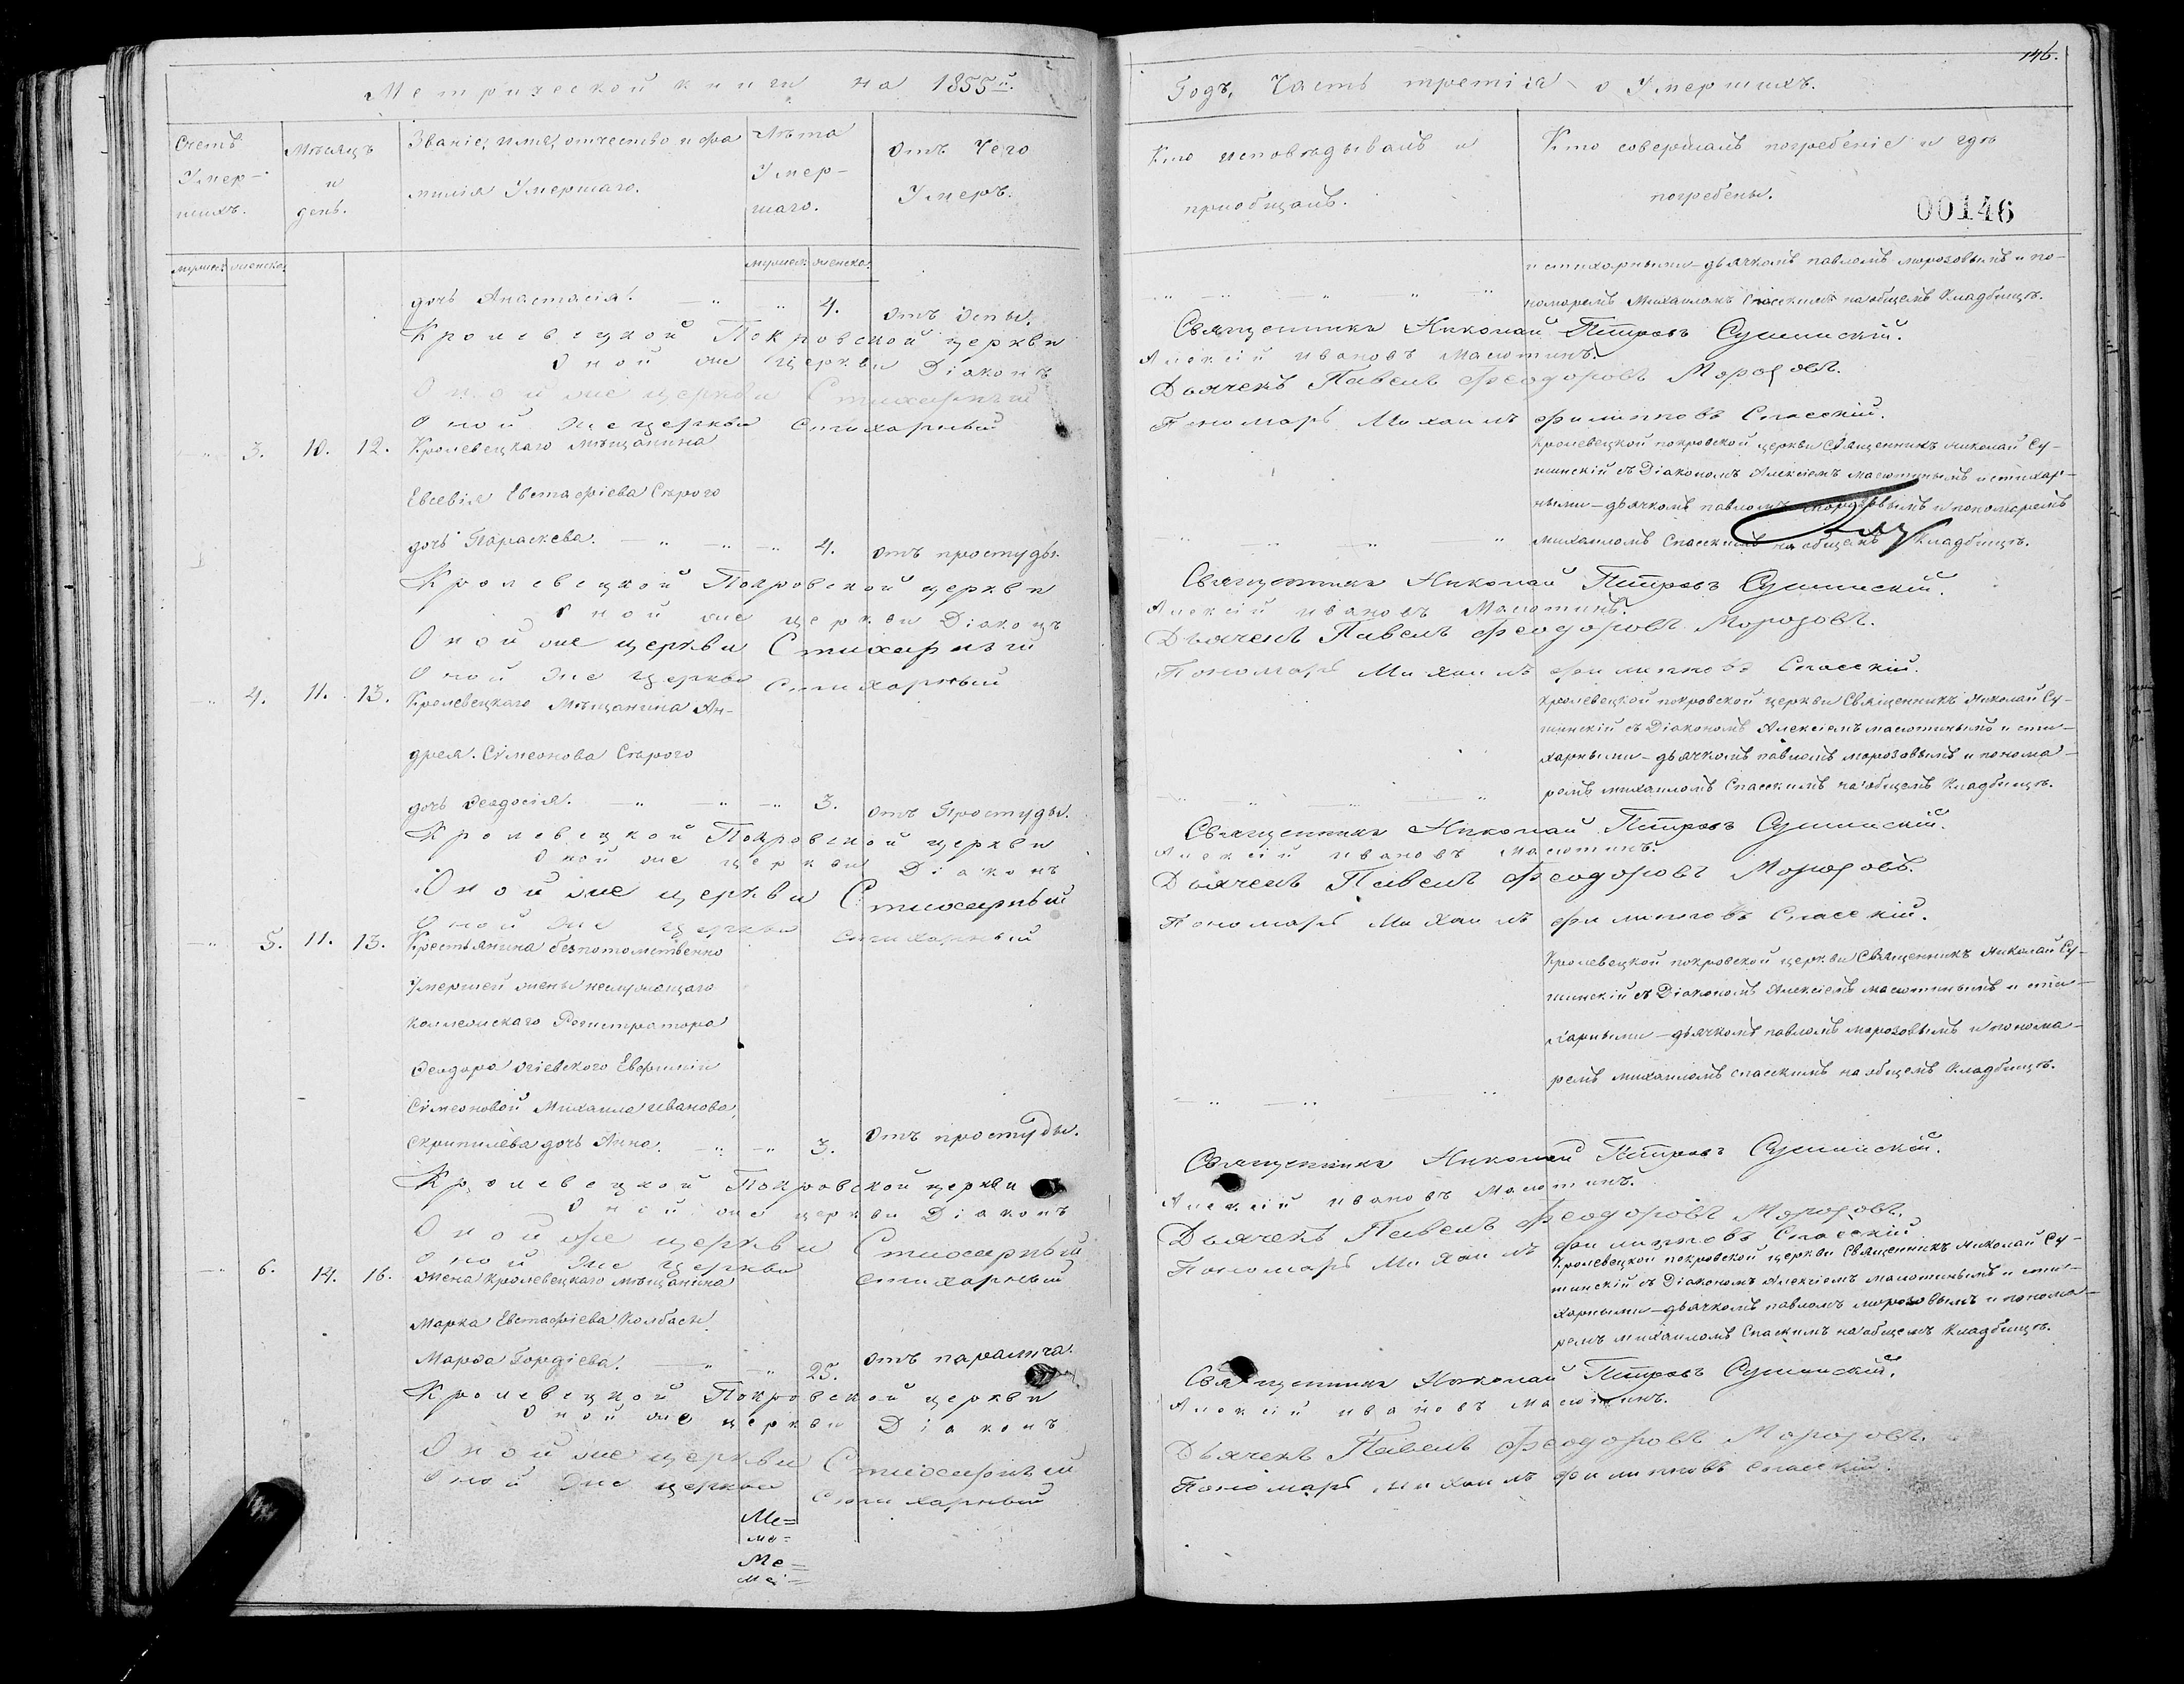 Метрической книги на 1855й.
Счетъ Умер-шихъ.
Мѣсяцъ и день.
Званіе, имя, отчество и фамилія Умершаго.
Лѣта Умер-шаго.
Отъ Чего Умеръ.
мужеск: женска:
мужеск: женска:
дочь Анастасія. — " " 4. отъ оспы.
Кролевецкой Покровской церкви
Оной же церкви Діаконъ
Оной же церкви Стихарный
Оной же церкви Стихарный
3. 10. 12. Кролевецкаго мѣщанина
Евсевія Евстафіева Сѣрого
дочь Параскева. — " — " — " 4. отъ простуды.
Кролевецкой Покровской церкви
Оной же церкви Діаконъ
Оной же церкви Стихарный
Оной же церкви Стихарный
4. 11. 13. Кролевецкаго Мѣщанина Ан-
дрея Сімеонова Сѣрого
дочь Ѳеодосія. — " " — " 3. отъ Простуды.
Кролевецкой Покровской церкви
Оной же церкви Діаконъ
Оной же церкви Стихарный
Оной же церкви Стихарный
5. 11. 13. Крестьянина безпотомственно
Умершей жены неслужащаго
Коллежскаго Регистратора
Ѳеодора Огіевского Евфиміи
Сімеоновой Михаила Иванова
Скрипилёва дочь Анна. — " — " 3. отъ простуды.
Кролевецкой Покровской церкви
Оной же церкви Діаконъ
Оной же церкви Стихарный
Оной же церкви Стихарный
6. 14. 16. Жена Кролевецкаго Мѣщанина
Марка Евстафіева Колбасы
Марѳа Гордіева. — " — " 25. отъ паралича.
Кролевецкой Покровской церкви
Оной же церкви Діаконъ
Оной же церкви Стихарный
Оной же церкви Стихарный
Ме=
ме=
Ме=
ме=
146.
Годъ, Часть третія о Умершихъ.
Кто исповѣдывалъ и приобщалъ.
Кто совершалъ погребеніе и гдѣ погребены.
00146
и стихарными — дьячкомъ павломъ морозовымъ и по-
номаремъ Михаиломъ Спасскимъ на общемъ Кладбищѣ.
Священникъ Николай Петровъ Сушинскій.
Алексій Ивановъ Масютинъ.
Дьячекъ Павелъ Феодоровъ Морозовъ.
Пономарь Михаилъ Филипповъ Спасскій.
Кролевецкой покровской церкви Священникъ Николай Су-
шинскій съ Діакономъ Алексіемъ масютинымъ и стихар-
ными — дьячкомъ павломъ морозовымъ и пономаремъ
михаиломъ Спасскимъ на общемъ Кладбищѣ.
Священникъ Николай Петровъ Сушинскій.
Алексій Ивановъ Масютинъ.
Дьячекъ Павелъ Феодоровъ Морозовъ.
Пономарь Михаилъ Филипповъ Спасскій.
Кролевецкой покровской церкви Священникъ Николай Су-
шинскій съ Діакономъ Алексіемъ масютинымъ и сти-
харными — дьячкомъ павломъ морозовымъ и понома-
ремъ михаиломъ Спасскимъ на общемъ Кладбищѣ.
Священникъ Николай Петровъ Сушинскій.
Алексій Ивановъ Масютинъ.
Дьячекъ Павелъ Феодоровъ Морозовъ.
Пономарь Михаилъ Филипповъ Спасскій.
Кролевецкой покровской церкви Священникъ Николай Су-
шинскій съ Діакономъ Алексіемъ масютинымъ и сти-
харными — дьячкомъ павломъ морозовымъ и понома-
ремъ михаиломъ спасскимъ на общемъ Кладбищѣ.
Священникъ Николай Петровъ Сушинскій.
Алексій Ивановъ Масютинъ.
Дьячекъ Павелъ Феодоровъ Морозовъ.
Пономарь Михаилъ Филипповъ Спасскій
Кролевецкой покровской церкви Священникъ Николай Су-
шинскій съ Діакономъ Алексіемъ масютинымъ и сти-
харными — дьячкомъ павломъ морозовымъ и понома-
ремъ михаиломъ Спаскимъ на общемъ Кладбищѣ.
Священникъ Николай Петровъ Сушинскій.
Алексій Ивановъ Масютинъ.
Дьячекъ Павелъ Феодоровъ Морозовъ.
Пономарь Михаилъ Филипповъ Спасскій.